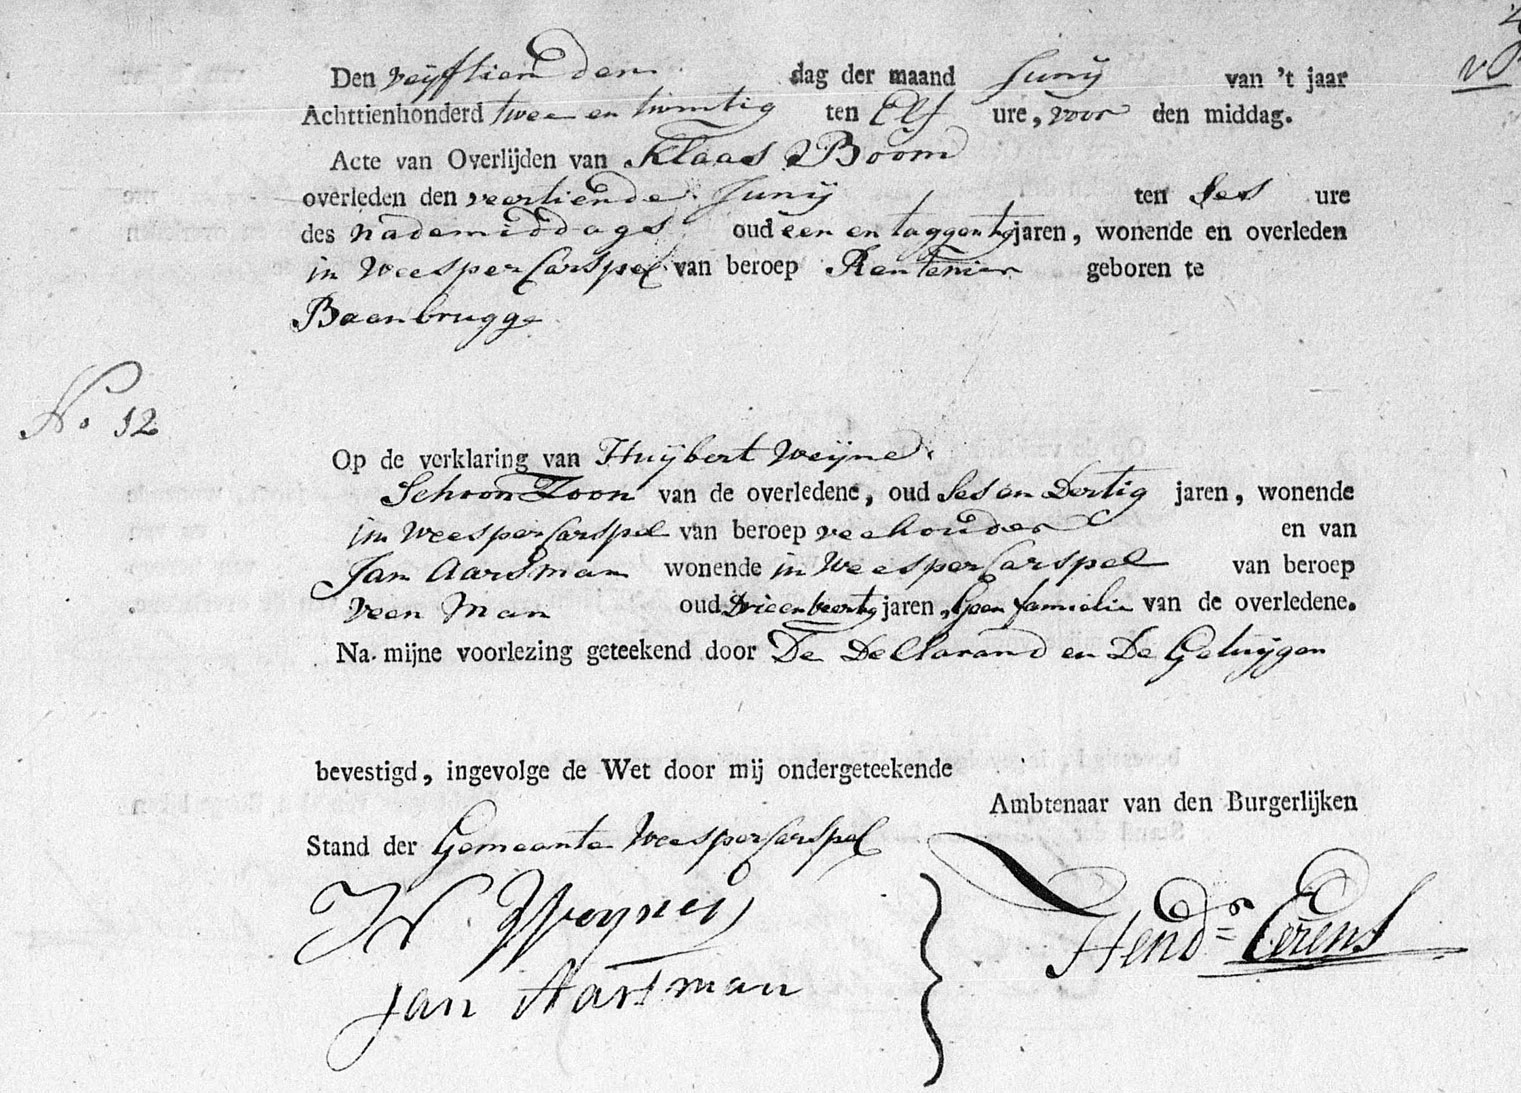 Den veijftienden dag der maand Junij van 't jaar
Achttienhonderd twee en twintig ten Elf ure, voor den middag.
Acte van Overlijden van Klaas Boom
overleden den veertiende Junij ten Ses ure
des nademiddags oud een en taggentig jaren, wonende en overleden
in Weespercarspel van beroep Rentenier geboren te
Baanbrugge
No 12
Op de verklaring van Huijbert Weijne
Schoon Zoon van de overledene, oud Ses en Dertig jaren, wonende
in Weespercarspel van beroep veehouder en van
Jan Aarsman wonende in Weespercarspel van beroep
veen Man oud Drieenveertig jaren, Geen familie van de overledene.
Na mijne voorlezing geteekend door De Declarand en De Getuijgen
bevestigd, ingevolge de Wet door mij ondergeteekende
Ambtenaar van den Burgerlijken
Stand der Gemeente Weespercarspel
H Weynes
Jan Aarsman
Hendr Eerens